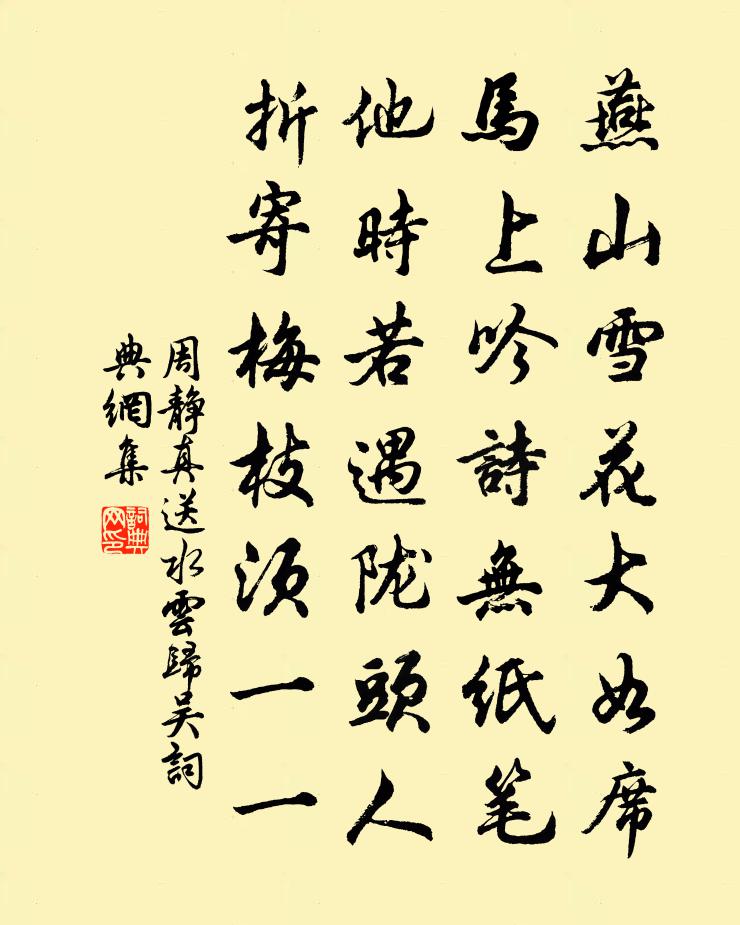 燕山雪花大如席
馬上吟詩無紙笔
他時若遇陇頭人
折寄梅枝须一一
周静真送水雲歸吴詞
典網集
詞典
网印